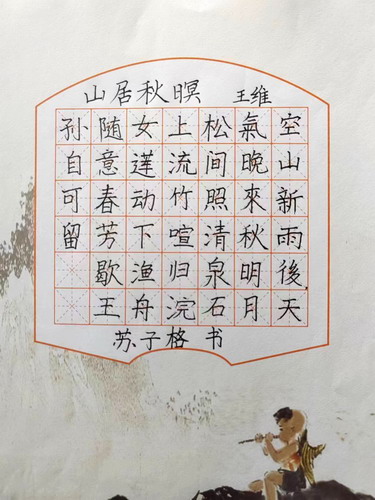 山居秋暝 王维
空山新雨後天
氣晚來秋明月
松间照清泉石
上流竹喧归浣
女莲动下渔舟
随意春芳歇王
孙自可留
苏子格 书